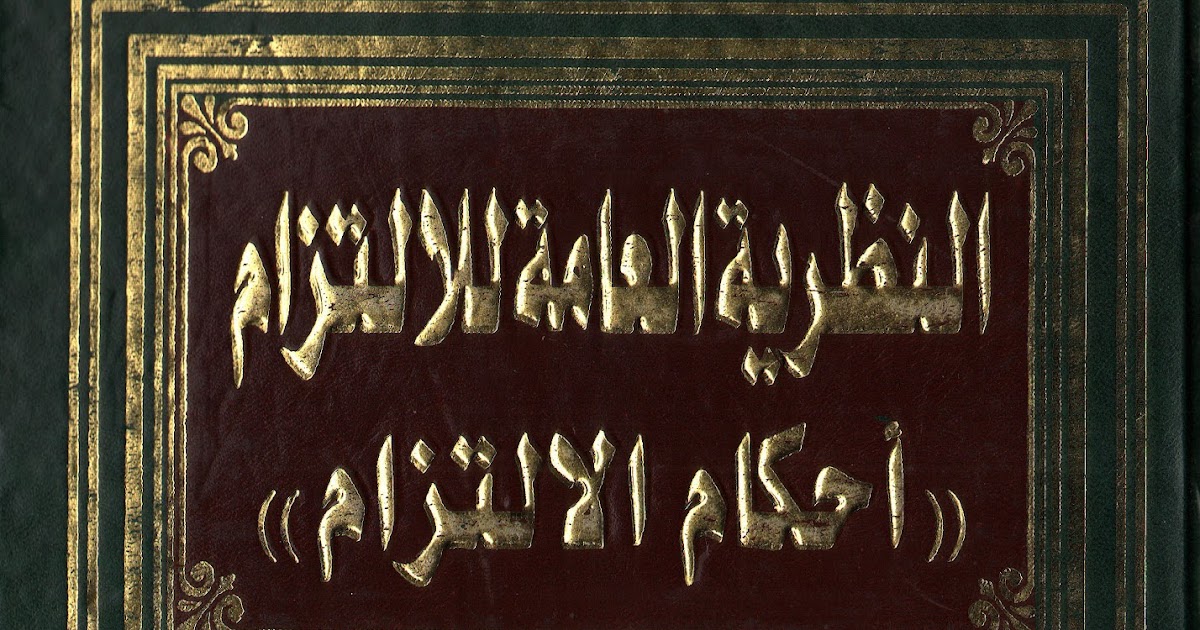 النظرية العامة للالتزام
((أحكام الالتزام))